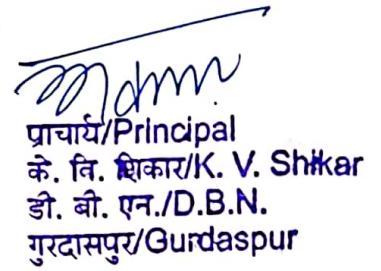 प्राचार्य/Principal
के. वि. शिकार/K. V. Shikar
डी. बी. एन./D.B.N.
गुरदासपुर/Gurdaspur